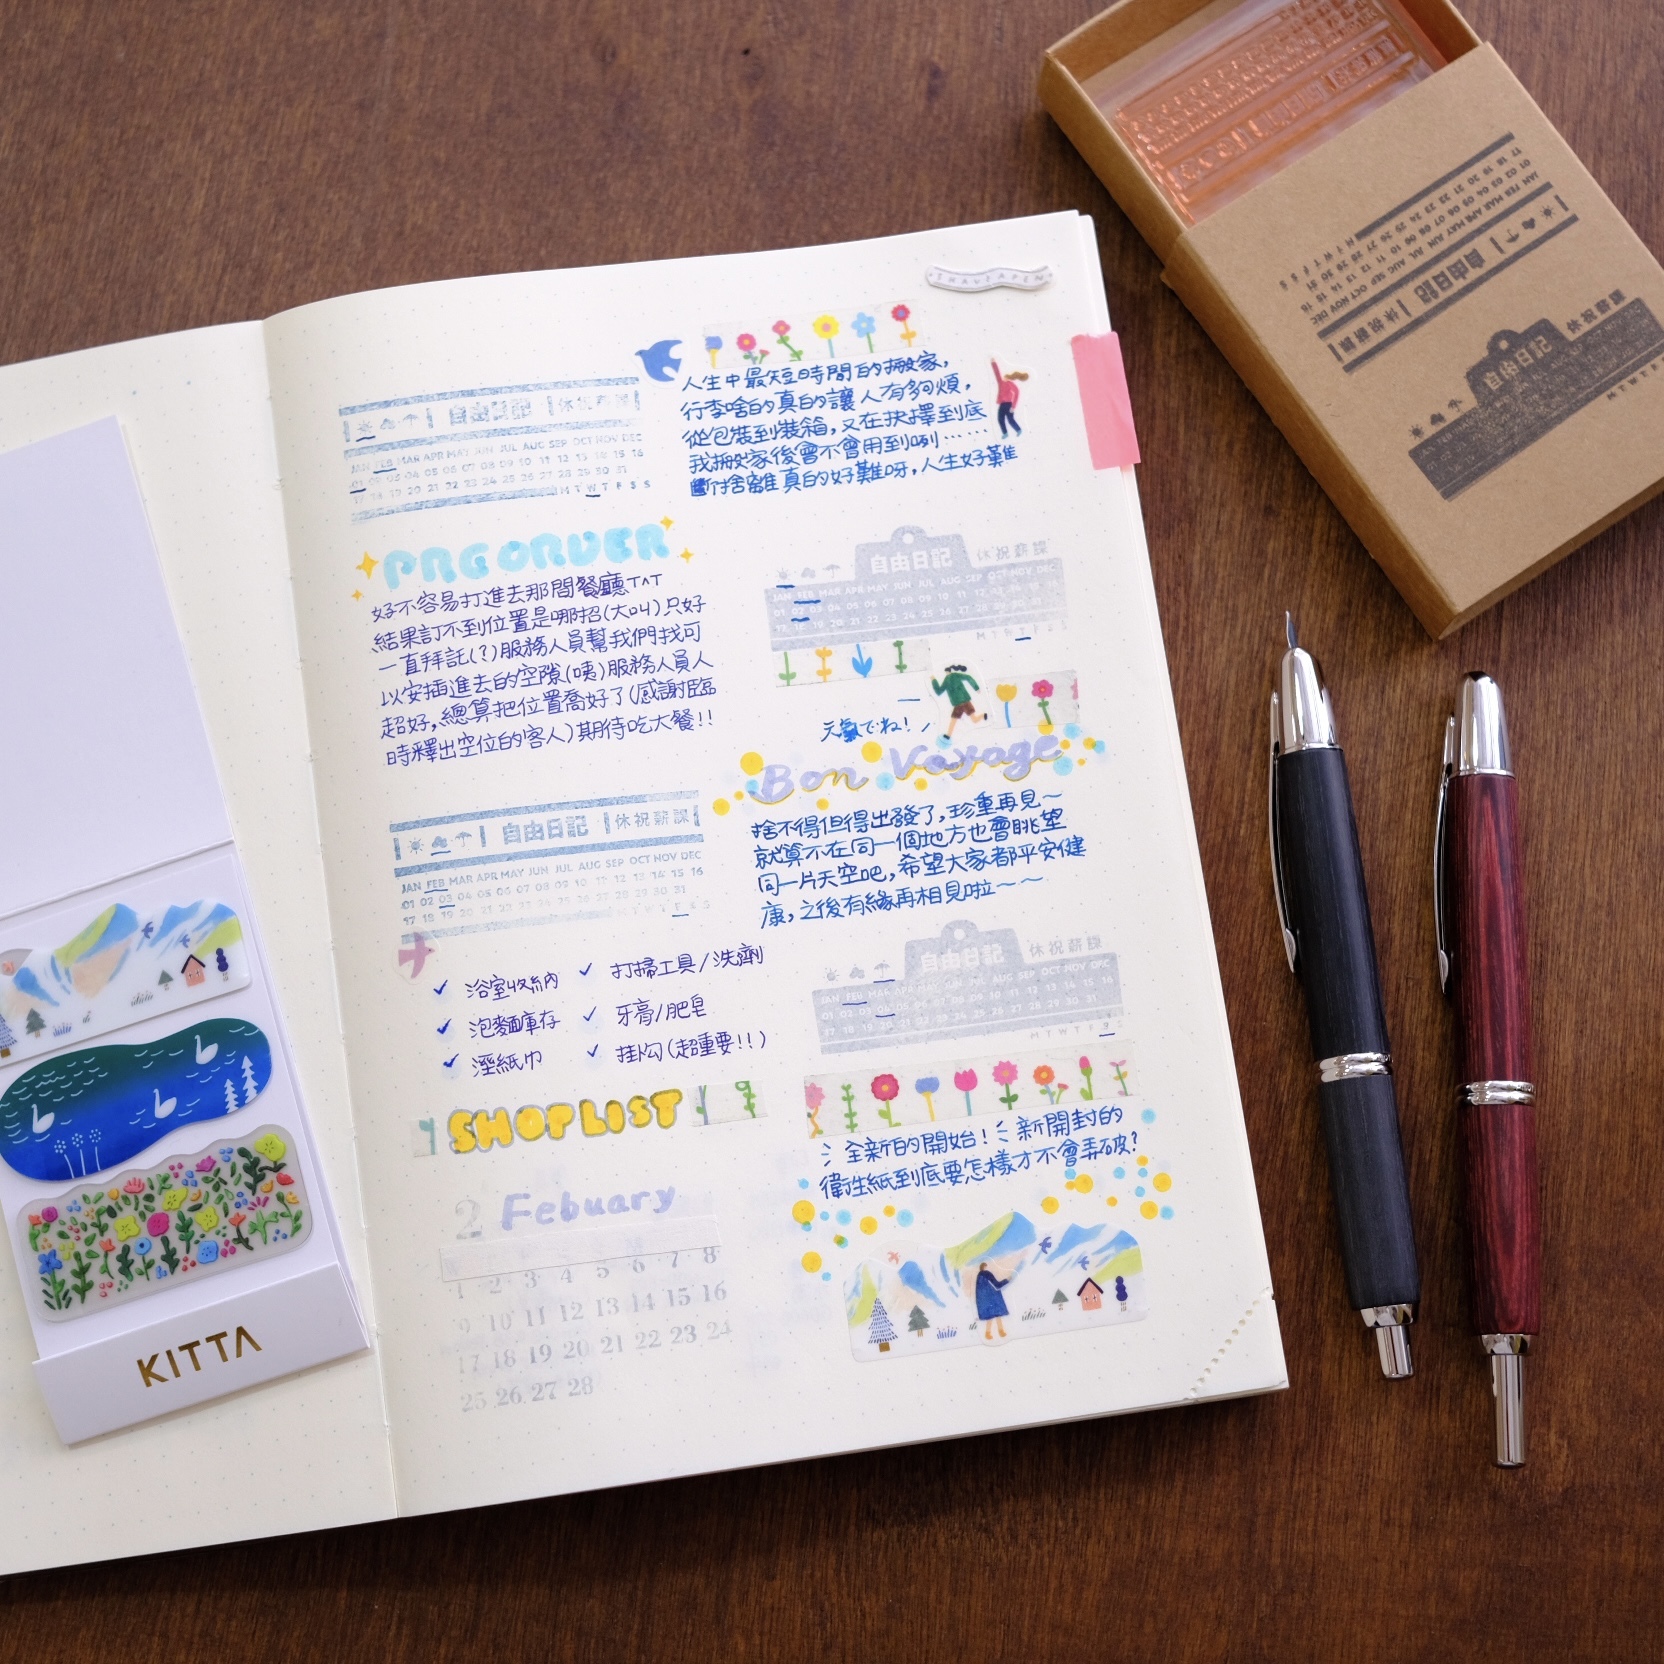 IHAVEAPEN
自由日記 休祝薪課
JAN FEB MAR APR MAY JUN JUL AUG SEP OCT NOV DEC
01 02 03 04 05 06 07 08 09 10 11 12 13 14 15 16
17 18 19 20 21 22 23 24 25 26 27 28 29 30 31
M T W T F S S
人生中最短時間的搬家,
行李啥的真的讓人有夠煩,
從包裝到裝箱,又在抉擇到底
我搬家後會不會用到咧……
斷捨離真的好難呀,人生好難
PREORDER
好不容易打進去那間餐廳TAT
結果訂不到位置是哪招(大叫)只好
一直拜託(?)服務人員幫我們找可
以安插進去的空隙(咦)服務人員人
超好,總算把位置喬好了(感謝臨
時釋出空位的客人)期待吃大餐!!
自由日記 休祝薪課
JAN FEB MAR APR MAY JUN JUL AUG SEP OCT NOV DEC
01 02 03 04 05 06 07 08 09 10 11 12 13 14 15 16
17 18 19 20 21 22 23 24 25 26 27 28 29 30 31
M T W T F S S
天氣でね!
Bon Voyage
捨不得但得出發了,珍重再見~
就算不在同一個地方也會眺望
同一片天空吧,希望大家都平安健
康,之後有緣再相見啦~~
自由日記 休祝薪課
JAN FEB MAR APR MAY JUN JUL AUG SEP OCT NOV DEC
01 02 03 04 05 06 07 08 09 10 11 12 13 14 15 16
17 18 19 20 21 22 23 24 25 26 27 28 29 30 31
M T W T F S S
✓ 浴室收納 ✓ 打掃工具/洗劑
✓ 泡麵庫存 ✓ 牙膏/肥皂
✓ 溼紙巾 ✓ 掛勾(超重要!!)
SHOPLIST
自由日記 休祝薪課
JAN FEB MAR APR MAY JUN JUL AUG SEP OCT NOV DEC
01 02 03 04 05 06 07 08 09 10 11 12 13 14 15 16
17 18 19 20 21 22 23 24 25 26 27 28 29 30 31
M T W T F S
全新的開始! 新開封的
衛生紙到底要怎樣才不會弄破?
2 Febuary
1 2 3 4 5 6 7 8
9 10 11 12 13 14 15 16
17 18 19 20 21 22 23 24
25 26 27 28
KITTA
自由日記 休祝薪課
JAN FEB MAR APR MAY JUN JUL AUG SEP OCT NOV DEC
自由日記 休祝薪課